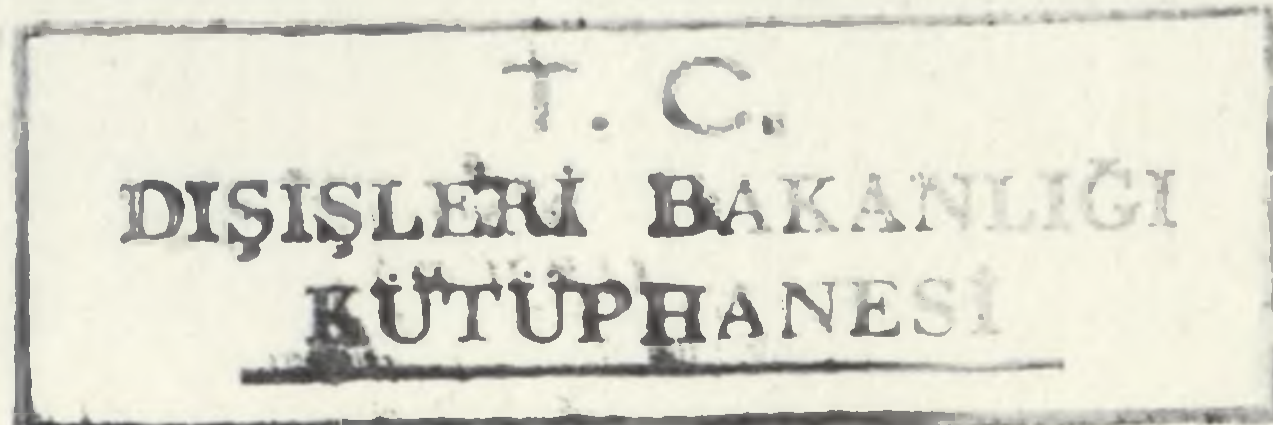 T. C.
DIŞİŞLERİ BAKANLIĞI
KÜTÜPHANESİ